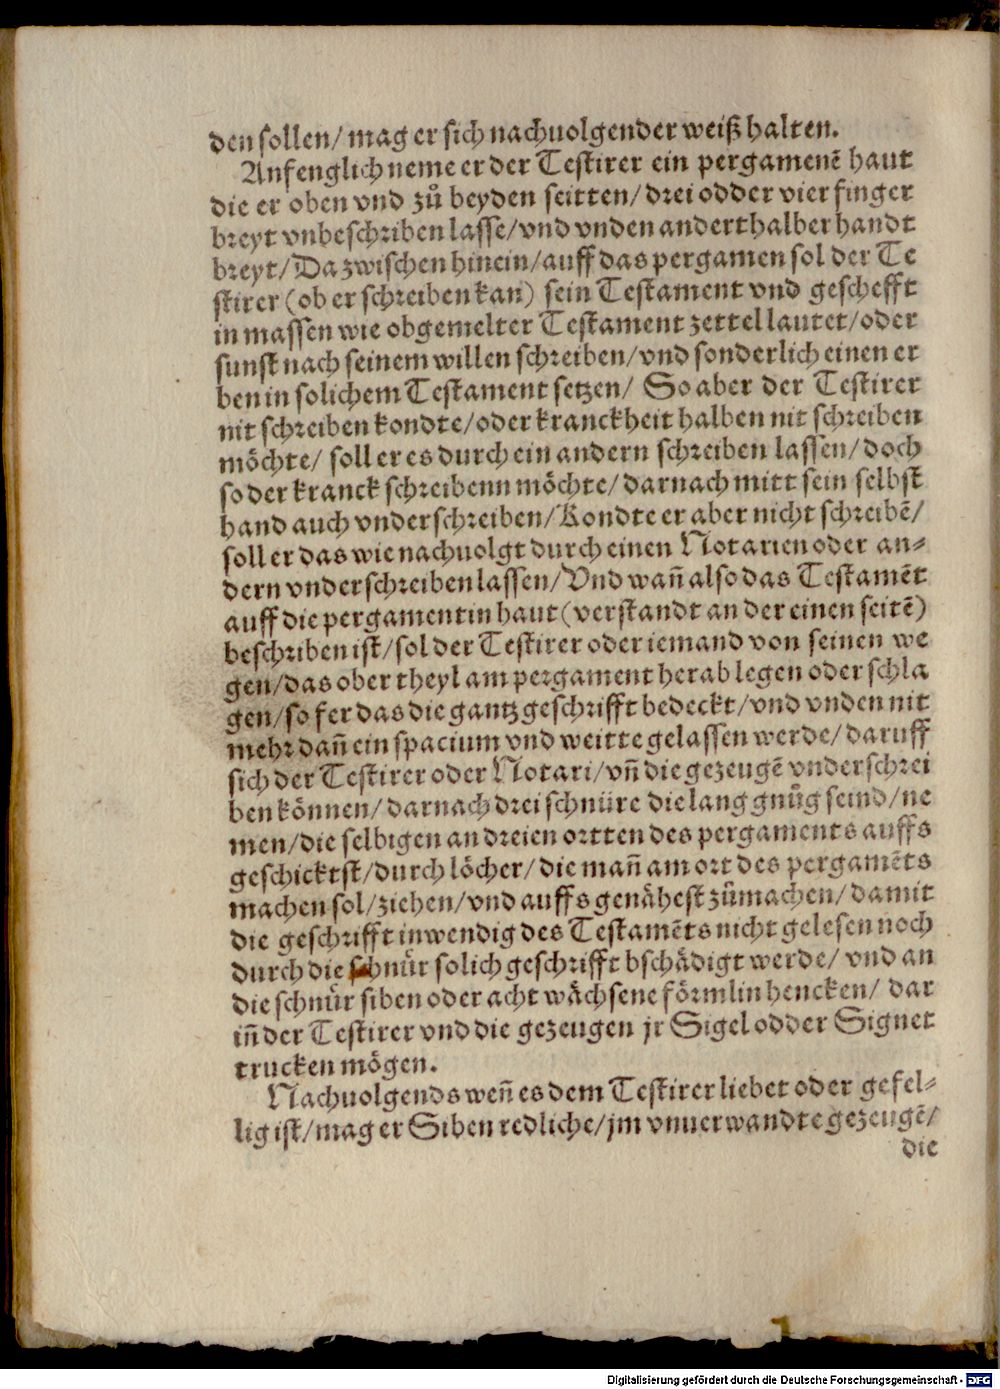 den sollen/ mag er sich nachuolgender weiß halten.
Anfenglich neme er der Testirer ein pergamenē haut
die er oben vnd zů beyden seitten/ drei odder vier finger
breyt vnbeschriben lasse/vnd vnden anderthalber handt
breyt/Da zwischen hinein/auff das pergamen sol der Te
stirer (ob er schreiben kan) sein Testament vnd geschefft
in massen wie obgemelter Testament zettel lautet/oder
sunst nach seinem willen schreiben/vnd sonderlich einen er
ben in solichem Testament setzen/ So aber der Testirer
nit schreiben kondte/oder kranckheit halben nit schreiben
möchte/ soll er es durch ein andern schreiben lassen/doch
so der kranck schreibenn möchte/darnach mitt sein selbst
hand auch vnderschreiben/Kondte er aber nicht schreibē/
soll er das wie nachuolgt durch einen Notarien oder an⸗
dern vnderschreiben lassen/Vnd wañ also das Testamēt
auff die pergamentin haut (verstandt an der einen seitē)
beschriben ist/sol der Testirer oder iemand von seinen we
gen/das ober theyl am pergament herab legen oder schla
gen/so fer das die gantz geschrifft bedeckt/vnd vnden nit
mehr dañ ein spacium vnd weitte gelassen werde/daruff
sich der Testirer oder Notari/vñ die gezeugē vnderschrei
ben können/darnach drei schnüre die lang gnůg seind/ne
men/die selbigen an dreien ortten des pergaments auffs
geschicktst/durch löcher/die mañ am ort des pergamēts
machen sol/ziehen/vnd auffs genähest zůmachen/damit
die geschrifft inwendig des Testamēts nicht gelesen noch
durch die schnür solich geschrifft bschädigt werde/ vnd an
die schnür siben oder acht wächsene förmlin hencken/ dar
iñ der Testirer vnd die gezeugen jr Sigel odder Signet
trucken mögen.
Nachuolgends weñ es dem Testirer liebet oder gefel⸗
lig ist/mag er Siben redliche/jm vnuerwandte gezeugē/
die
Digitalisierung gefördert durch die Deutsche Forschungsgemeinschaft - DFG